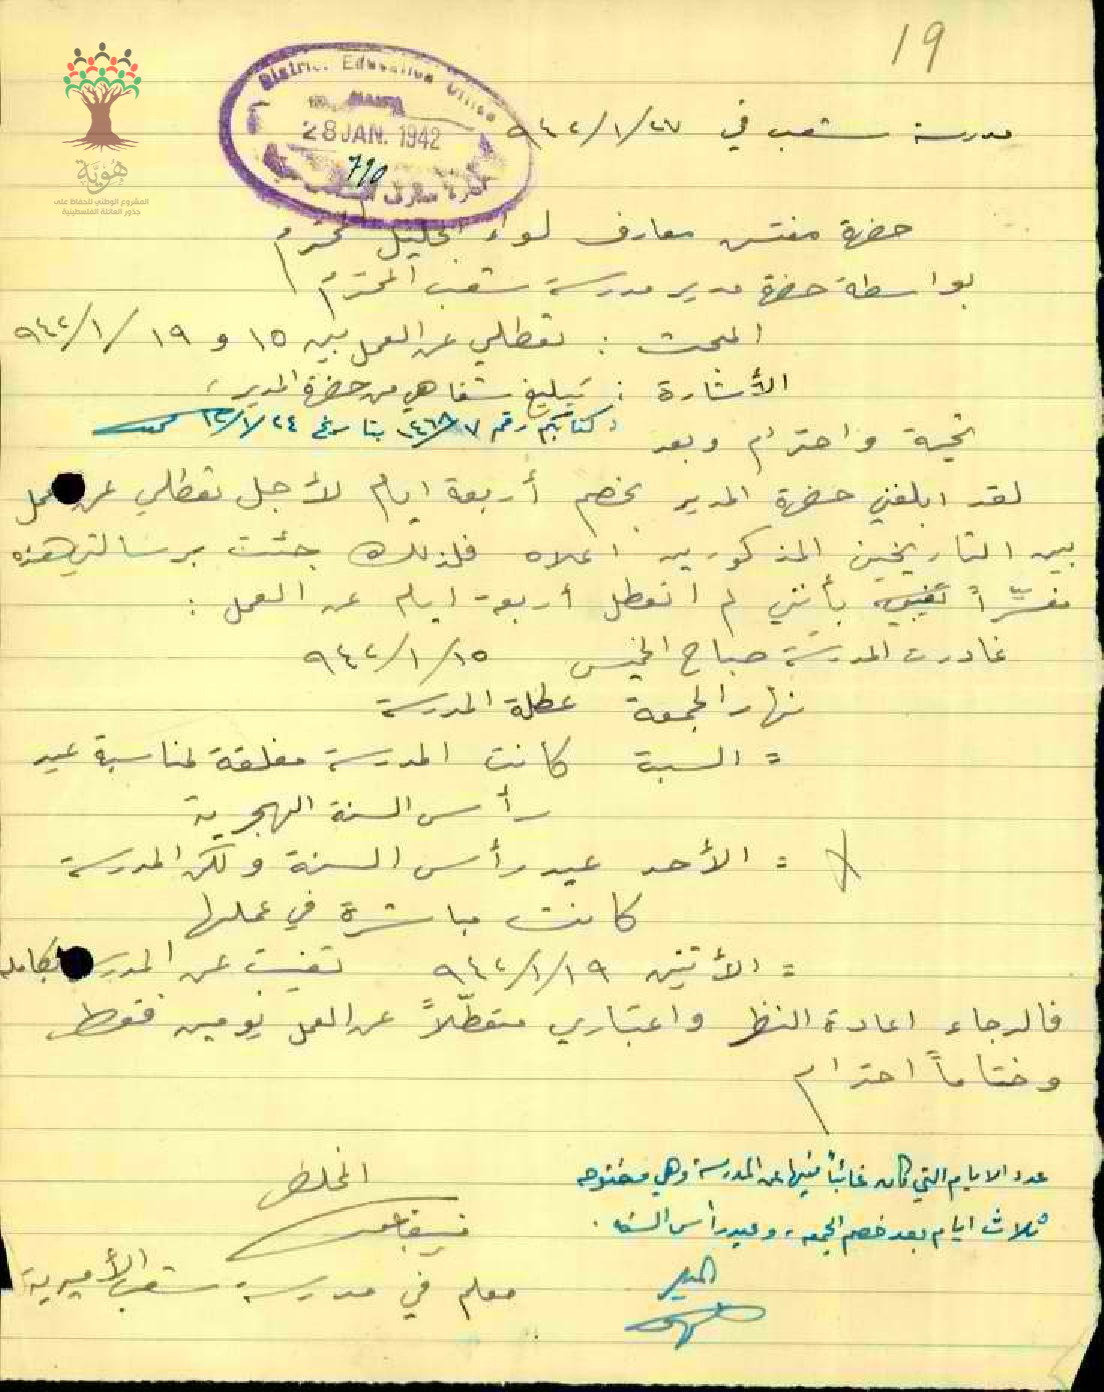 19
District Education Office
HAIFA
28 JAN. 1942
710
هُويّة
المشروع الوطني للحفاظ على
جذور العائلة الفلسطينية
مدرسة شعب في ٢٧/١/٩٤٢
حضرة مفتش معارف لواء الجليل المحترم
بواسطة حضرة مدير مدرسة شعب المحترم
المبحث : تعطلي عن العمل بين ١٥ و ١٩/١/٩٤٢
الأشارة : تبليغ شفاهي من حضرة المدير،
كتابكم رقم ١٤٦٨/٧ بتاريخ ٢٤/١/٤٢
تحية واحترام وبعد
لقد ابلغني حضرة المدير بخصم أربعة ايام لأجل تعطلي عن العمل
بين التاريخين المذكورين اعلاه فلذلك جئت برسالتي هذه
مفسّراً بأنني لم اتعطل أربعة ايام عن العمل :
غادرت المدرسة صباح الخميس ١٥/١/٩٤٢
نهار الجمعة عطلة المدرسة
= السبت كانت المدرسة مغلقة لمناسبة عيد
رأس السنة الهجرية
= الأحد عيد رأس السنة ولكن المدرسة
كانت مباشرة في عملها
= الأثنين ١٩/١/٩٤٢ تغيبت عن المدرسة بكامله
فالرجاء اعادة النظر واعتباري متعطّلاً عن العمل يومين فقط
وختاماً احترام
المخلص
معلم في مدرسة شعب الأميرية
عدد الايام التي كان غائباً فيها عن المدرسة وهي مفتوحه
ثلاث ايام بعد خصم الجمعه، وعيد رأس السنه.
المدير